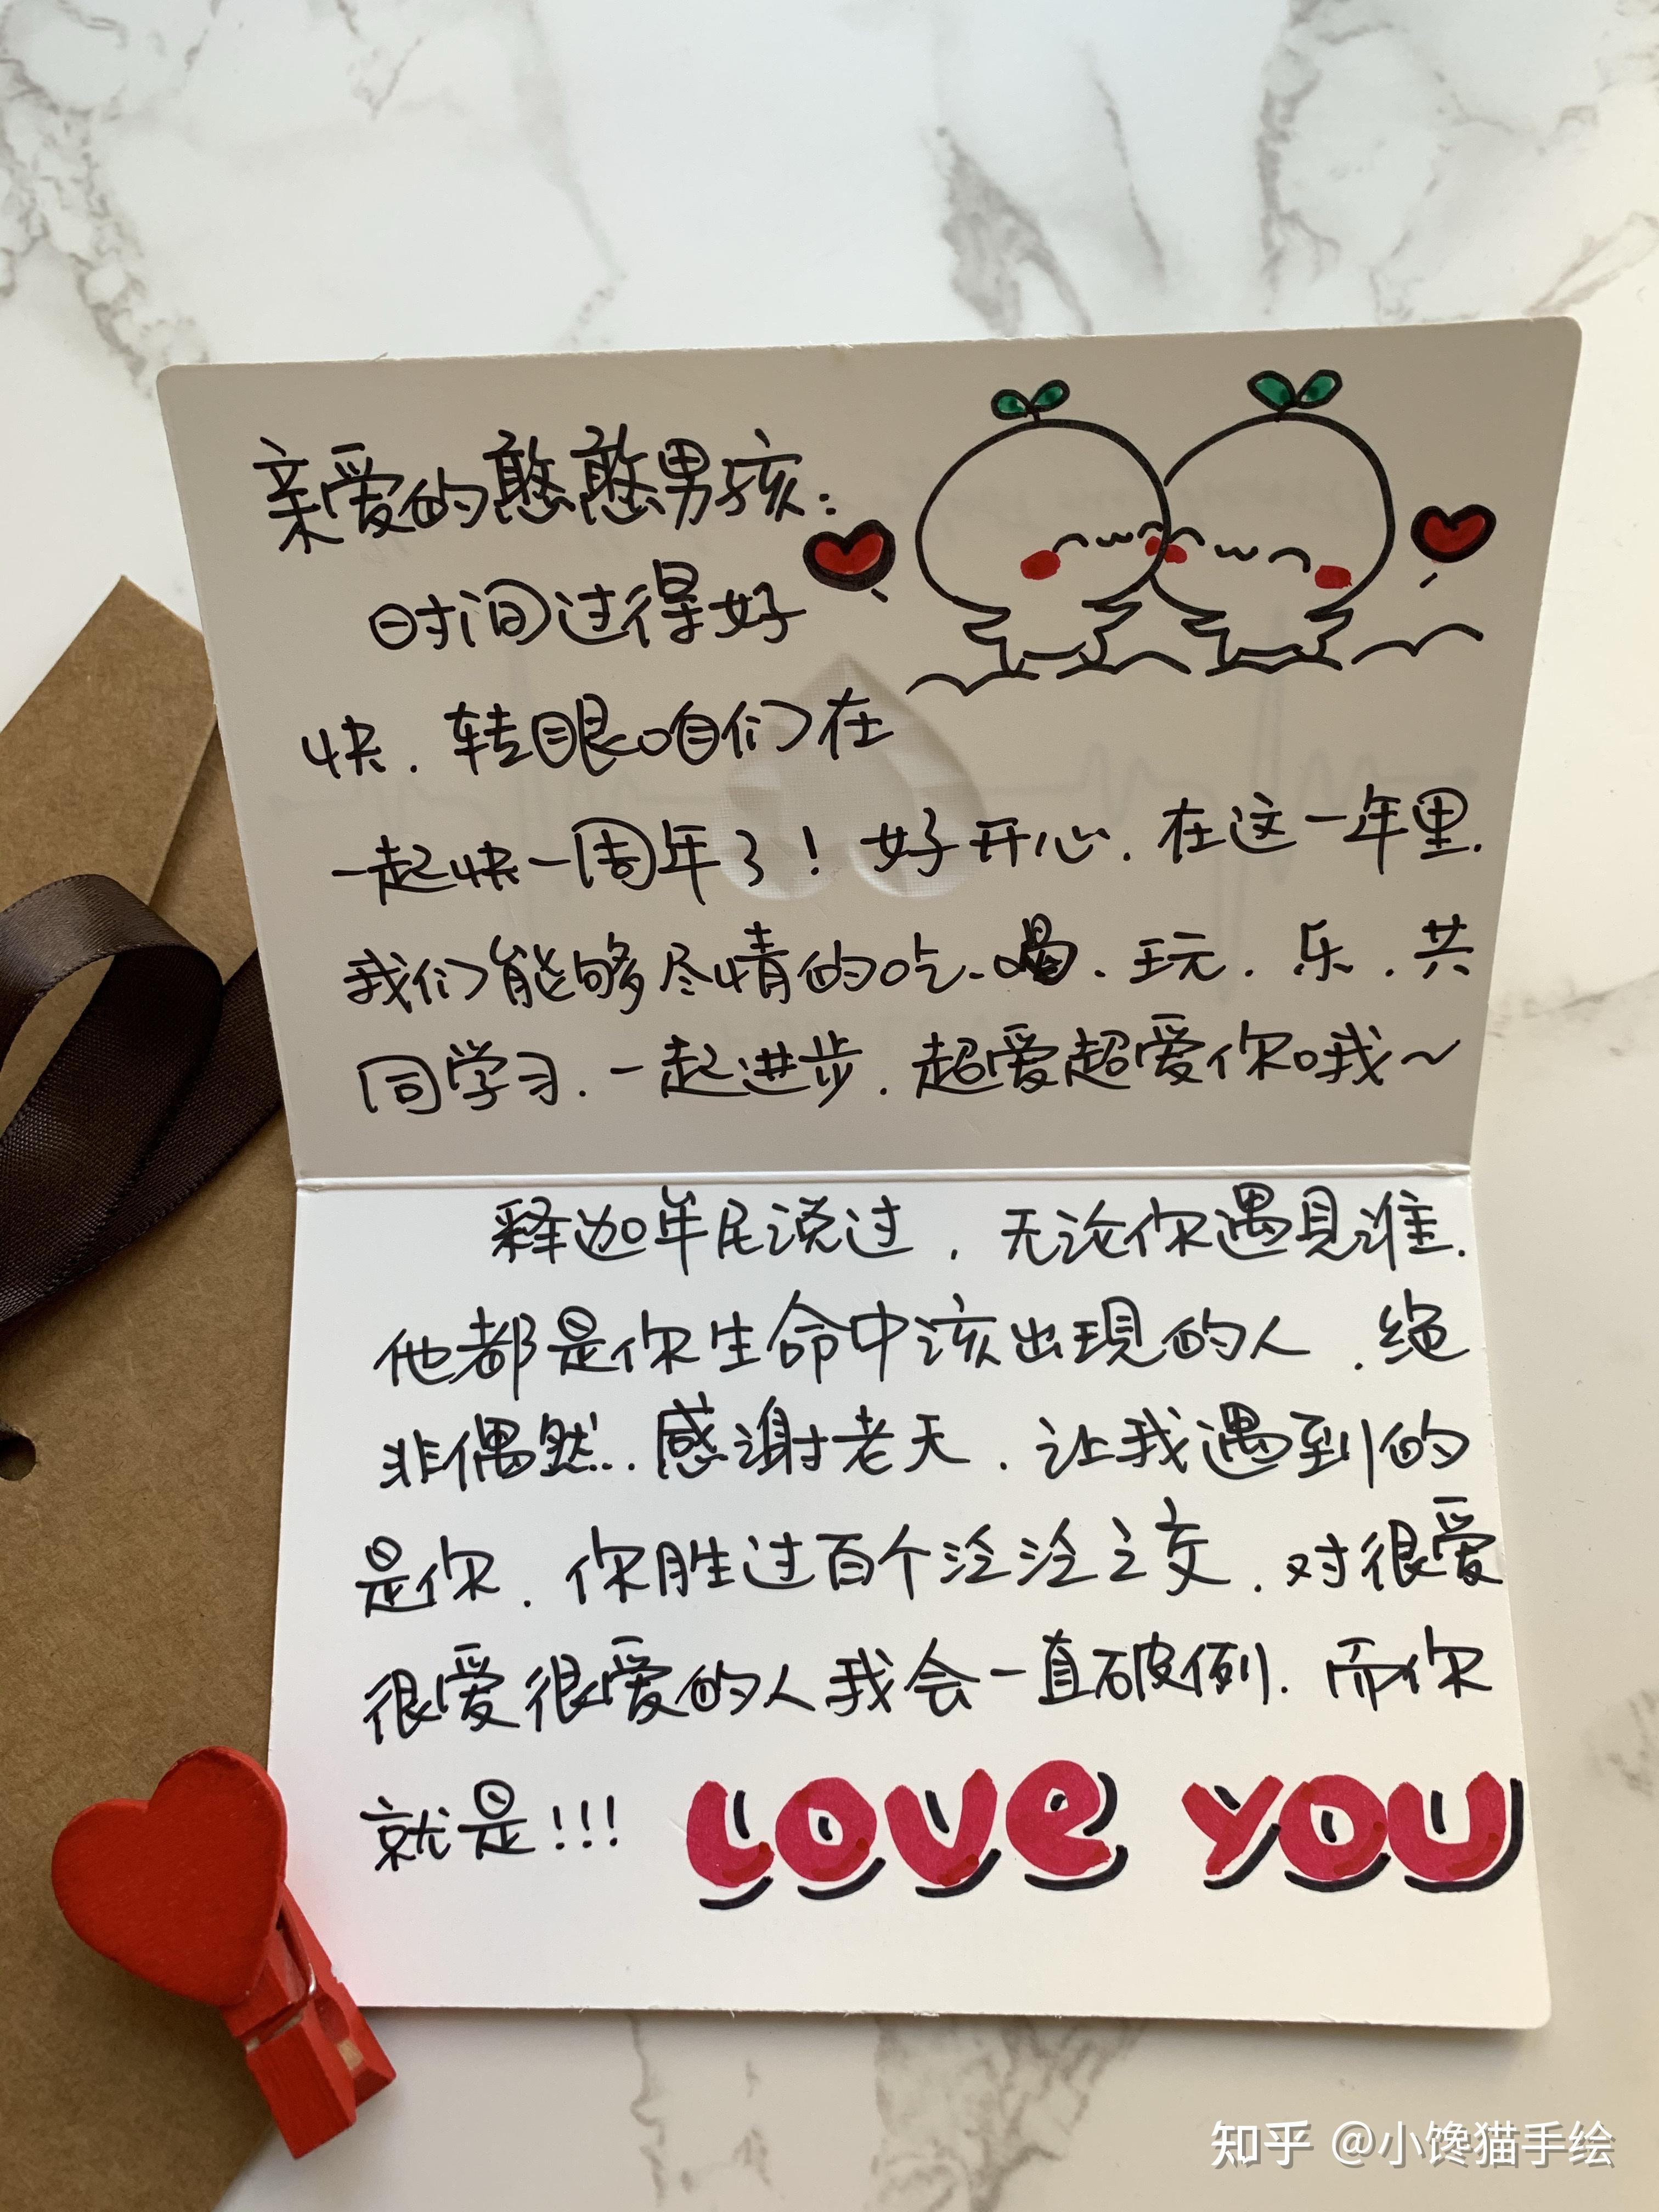 亲爱的憨憨男孩：
时间过得好
快．转眼咱们在
一起快一周年了！好开心．在这一年里．
我们能够尽情的吃．喝．玩．乐．共
同学习．一起进步．超爱超爱你哦～
释迦牟尼说过．无论你遇见谁．
他都是你生命中该出现的人．绝
非偶然．感谢老天．让我遇到的
是你．你胜过百个泛泛之交．对很爱
很爱很爱的人我会一直破例．而你
就是!!! LOVE YOU
知乎 @小馋猫手绘